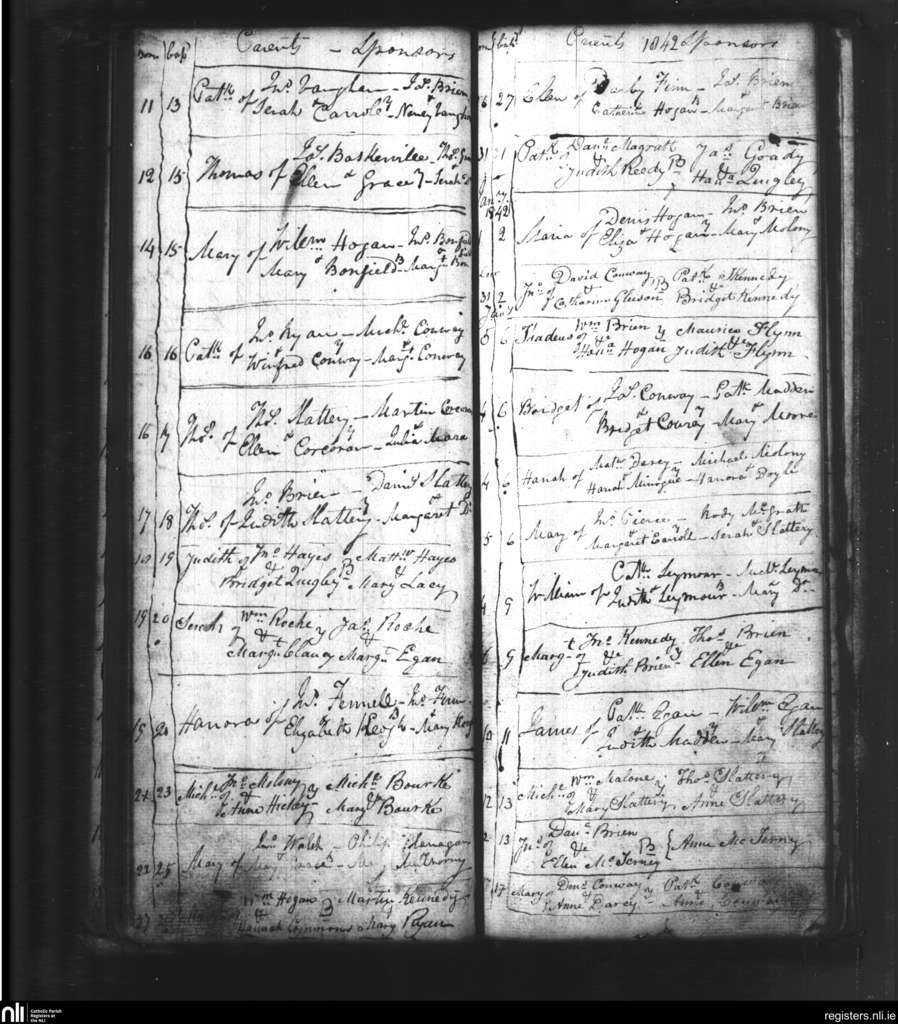 born bap^d Parents - Sponsors
11 13 Pat^k of Jn^o Vaughan - Jos. Brien
Serah Carrole - Nancy Vaughan
12 15 Thomas of Jos. Baskerville - Tho^s
Ellen Grace - Serah
14 15 Mary of Will^m Hogan - Jn^o Bonfield
Mary Bonfield - Marg^t Bon
16 16 Cath^e of Jn^o Ryan - Mich^l Conway
Winfred Conway - Marg^t Conway
16 17 Tho^s of Tho^s Slattery - Martin Corcoran
Ellen Corcoran - Julia Mara
17 18 Tho^s of Jn^o Brien - Daniel Slattery
Judith Slattery - Margaret D^o
18 19 Judith of Jn^o Hayes & Matt^w Hayes
Bridget Quigley - Mary Lacy
19 20 Serah of W^m Roche y Ja^s Roche
& &
Marg^t Clancy Marg^t Egan
19 20 Hanora of Jn^o Fennell - Jn^o Finn
Elizabeth Keogh - Mary Keogh
21 23 Mich^l of Jn^o Molony y Mich^l Bourke
& Anne Hickey - Mary Bourke
22 25 Mary of Jn^o Walsh - Philip Flanagan
27 W^m Hogan Martin Kennedy
Hannah Commons & Mary Ryan
born bap^d Parents 1842 Sponsors
26 27 Ellen of Darby Finn - Jos. Brien
Catherine Hogan - Margaret Brien
31 1 Pat^k of Dan^l Magrath Ja^s Grady
& &
Judith Reedy B Han^a Quigley
Jan^ry
1842
1 2 Maria of Denis Hogan - Jn^o Brien
Eliza Hogan - Mary Molony
31 2 Jn^o of David Conway B Pat^k Kennedy
& Catharine Gleeson Bridget Kennedy
Jan^y
5 6 Thadeus of W^m Brien y Maurice Flynn
& Han^a Hogan Judith Flynn
4 6 Bridget of Jos. Conway - Pat^k Madden
Bridget Conway - Mary Moore
4 6 Hanah of Mat^w Darcy - Michael Molony
Hanora Minogue - Hanora Doyle
5 6 Mary of Jn^o Pierce - Rody McGrath
Margaret Carroll - Serah Slattery
4 9 William of Pat^k Seymour - Mich^l Seymour
Judith Seymour - Mary D^o
6 9 Marg^t of Jn^o Kennedy Tho^s Brien
& &
Judith Brien y Ellen Egan
10 11 James of Pat^k Egan - Will^m Egan
Judith Madden - Mary Slattery
12 13 Mich^l of W^m Malone y Tho^s Slattery
& Mary Slattery Anne Slattery
12 13 Jn^o of Dan^l Brien
& B { Anne McTerney
Ellen McTerney
17 Mary of Den^s Conway y Pat^k
& Anne Darcy Anne
nli Catholic Parish
Registers at
the NLI
registers.nli.ie